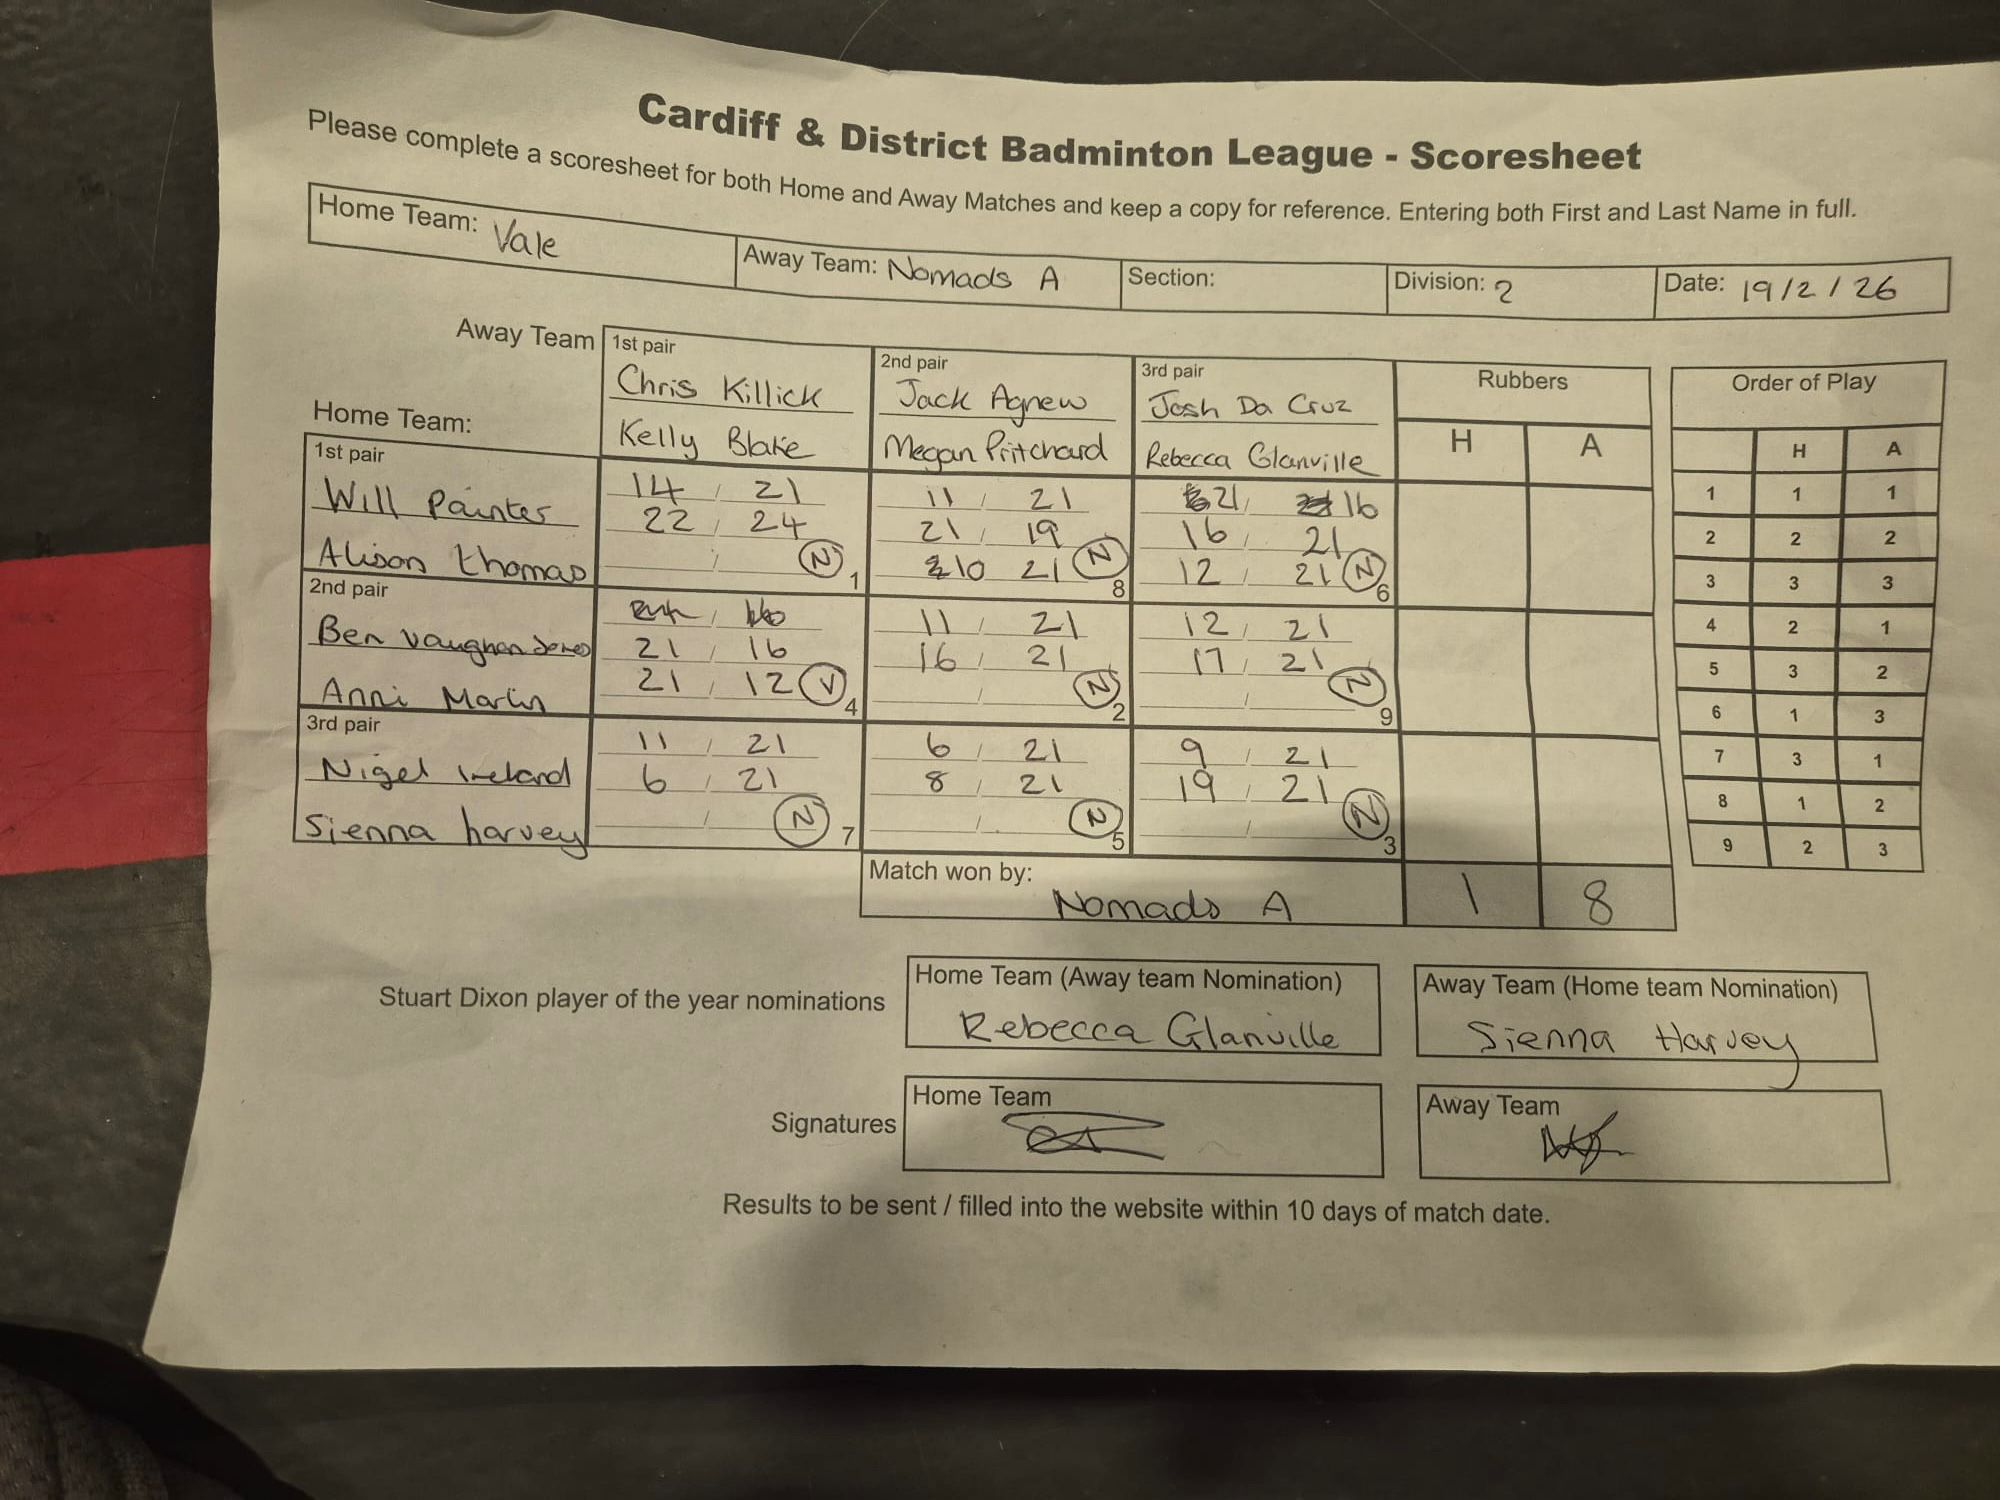 Cardiff & District Badminton League - Scoresheet
Please complete a scoresheet for both Home and Away Matches and keep a copy for reference. Entering both First and Last Name in full.
Home Team: Vale
Away Team: Nomads A
Section:
Division: 2
Date: 19/2/26
Away Team
1st pair
Chris Killick
Kelly Blake
2nd pair
Jack Agnew
Megan Pritchard
3rd pair
Josh Da Cruz
Rebecca Glanville
Rubbers
H A
Home Team:
1st pair
Will Painter
Alison thomas
14 / 21
22 / 24
/ N 1
11 / 21
21 / 19
10 21 N 8
21 / 16
16 / 21
12 / 21 N 6
2nd pair
Ben vaughan Jones
Anni Marlin
21 / 16
21 / 12 V 4
11 / 21
16 / 21
/ N 2
12 / 21
17 / 21
/ N 9
3rd pair
Nigel Ireland
Sienna harvey
11 / 21
6 / 21
/ N 7
6 / 21
8 / 21
/ N 5
9 / 21
19 / 21
/ N 3
Match won by: Nomads A 1 8
Order of Play
H A
1 1 1
2 2 2
3 3 3
4 2 1
5 3 2
6 1 3
7 3 1
8 1 2
9 2 3
Stuart Dixon player of the year nominations
Home Team (Away team Nomination)
Rebecca Glanville
Away Team (Home team Nomination)
Sienna Harvey
Signatures
Home Team
Away Team
Results to be sent / filled into the website within 10 days of match date.